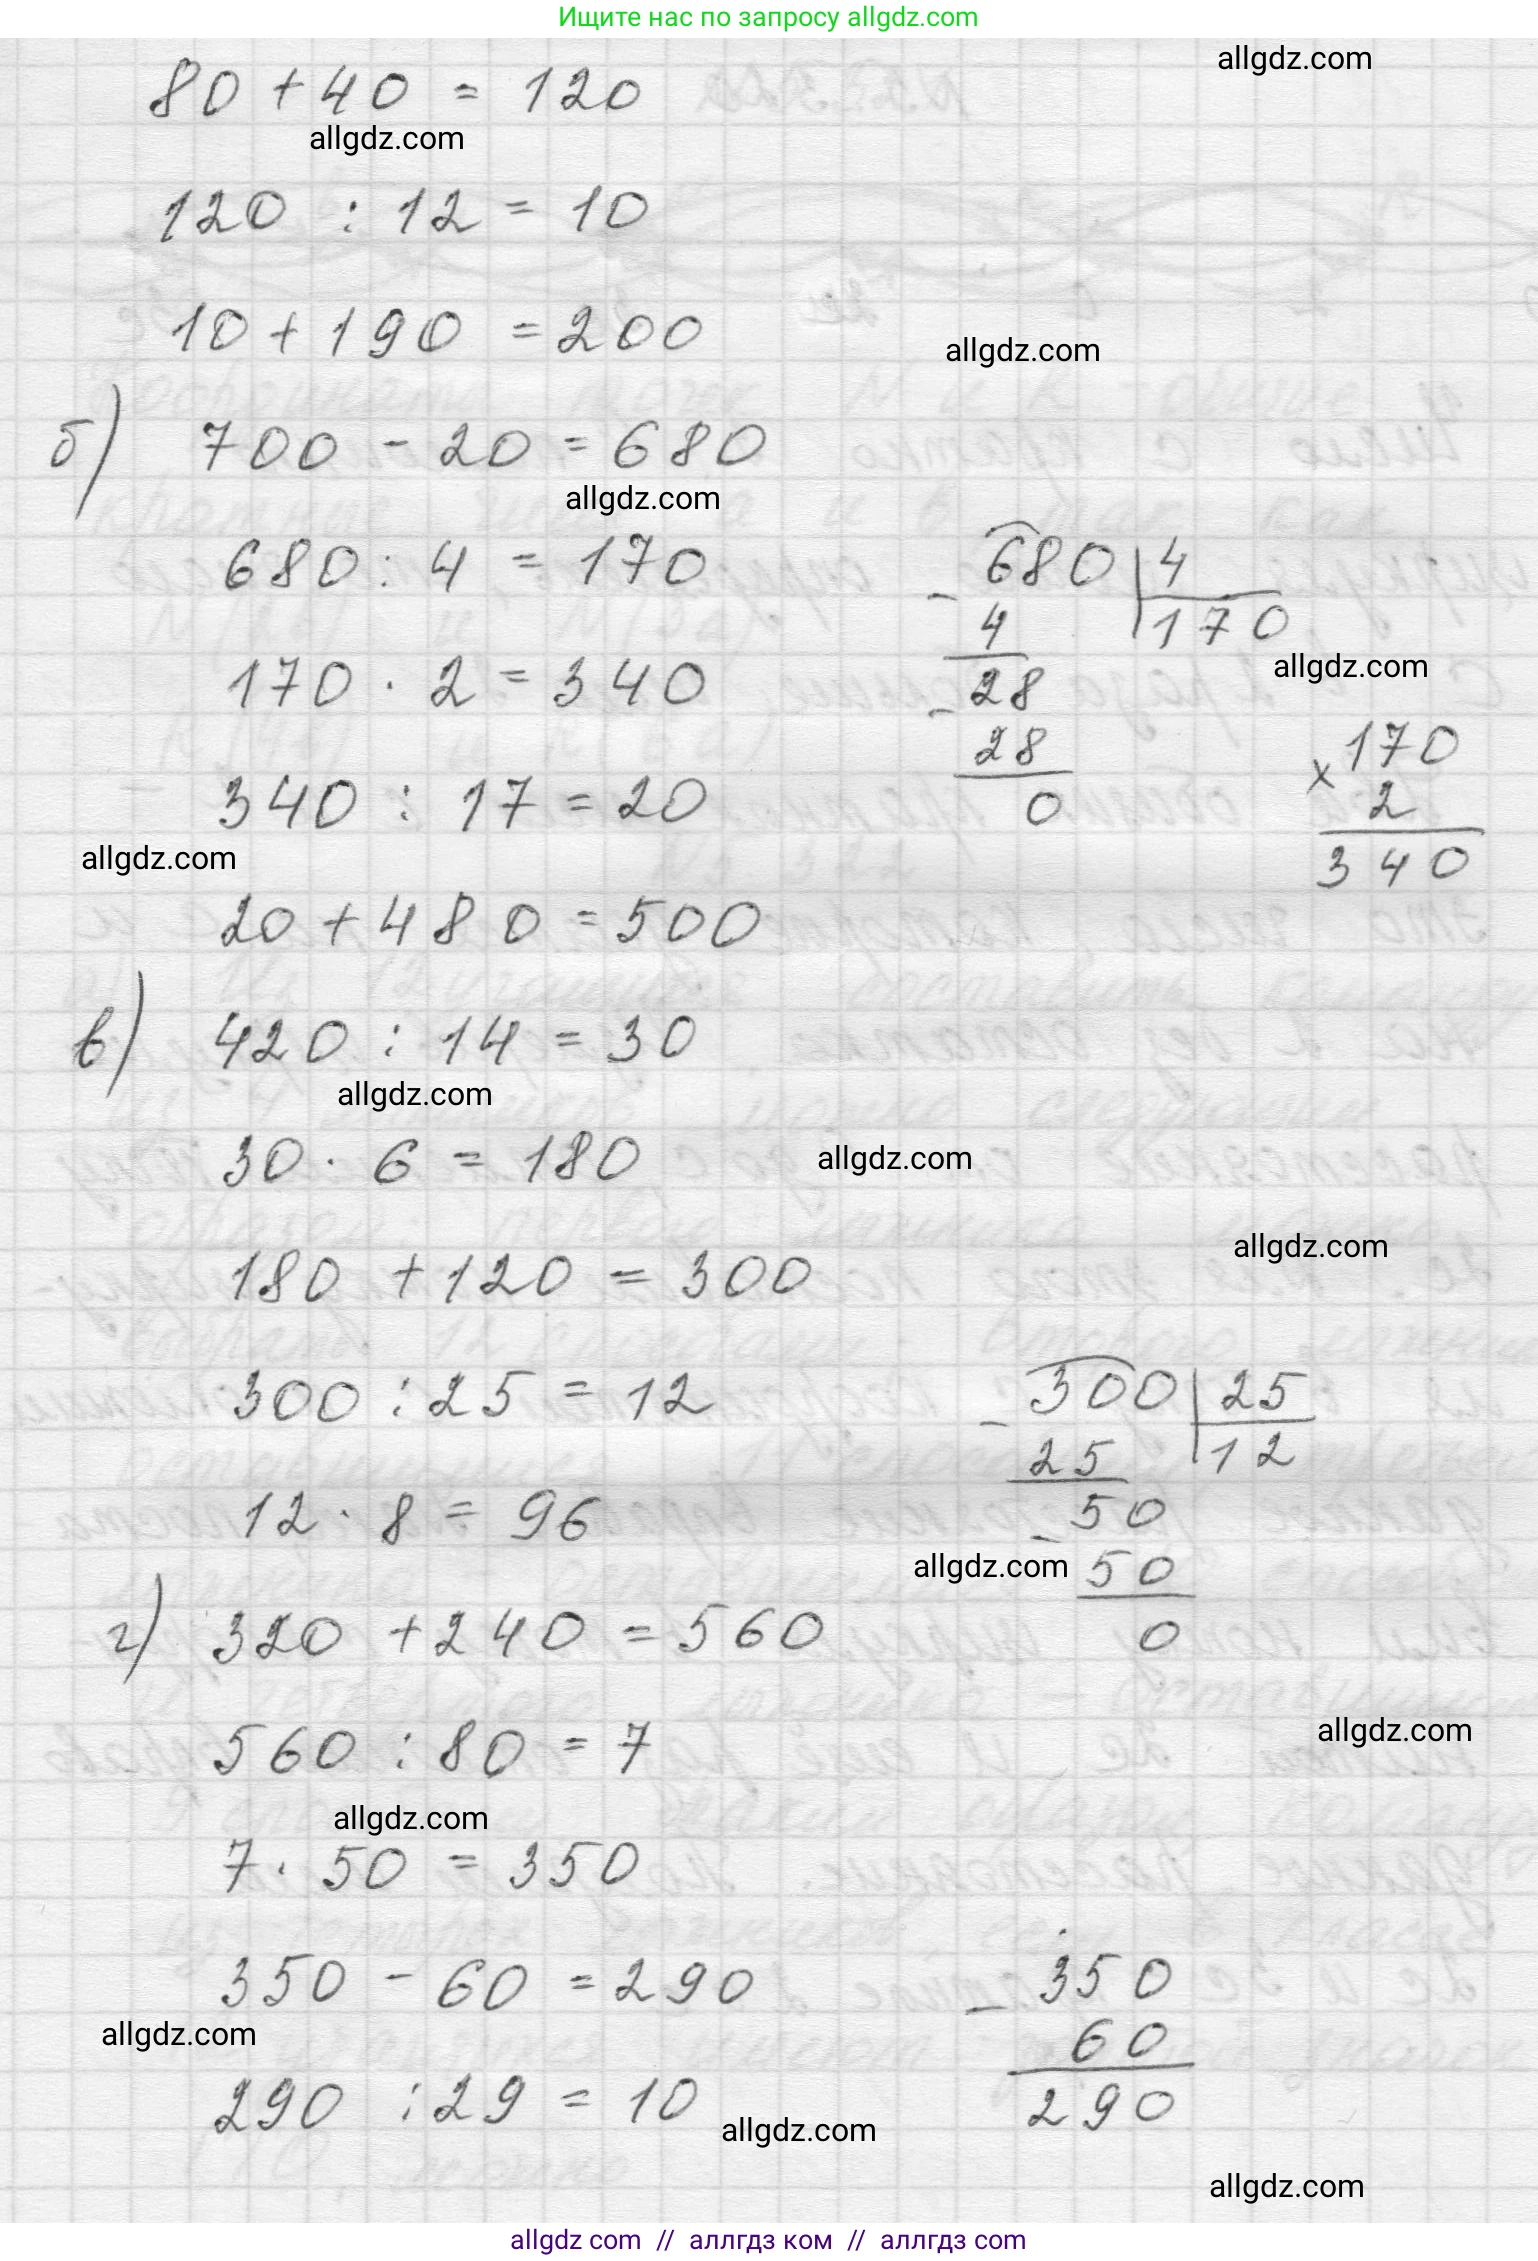 Ищите нас по запросу allgdz.com
allgdz.com
80 + 40 = 120
allgdz.com
120 : 12 = 10
10 + 190 = 200
allgdz.com
б) 700 - 20 = 680
allgdz.com
680 : 4 = 170
680 | 4
- 4
170
allgdz.com
28
- 28
0
170 · 2 = 340
170
× 2
340
340 : 17 = 20
allgdz.com
20 + 480 = 500
в) 420 : 14 = 30
allgdz.com
30 · 6 = 180
allgdz.com
180 + 120 = 300
allgdz.com
300 : 25 = 12
300 | 25
- 25
12
50
- 50
0
12 · 8 = 96
allgdz.com
г) 320 + 240 = 560
560 : 80 = 7
allgdz.com
allgdz.com
7 · 50 = 350
350 - 60 = 290
350
- 60
290
allgdz.com
290 : 29 = 10
allgdz.com
allgdz.com
allgdz com // аллгдз ком // аллгдз com